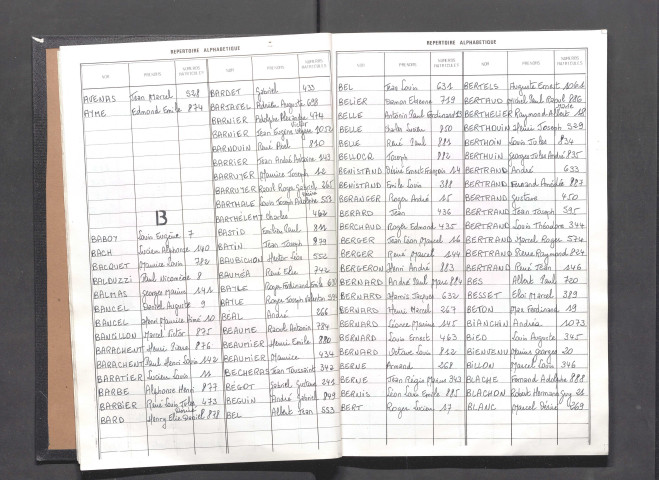 REPERTOIRE ALPHABETIQUE
NOM PRENOMS NUMEROS MATRICULES NOM PRENOMS NUMEROS MATRICULES
AVENAS Jean Marcel 378
AYME Edmond Emile 874
B
BABOY Louis Eugène 7
BACH Lucien Alphonse 140
BACQUET Maurice Louis 782
BALDUZZI Paul Nicomède 8
BALMAS Georges Marius 141
BANCEL Daniel Auguste 9
BANCEL Henri Maurice Aimé 10
BANSILLON Marcel Victor 875
BARACHENT Henri Pierre 876
BARACHENT Paul Henri Louis 142
BARATIER Lucien Louis 11
BARBE Alphonse Henri 877
BARBIER René Louis Jules 473
BARD Henry Elie Daniel 878
BARDET Gabriel 433
BARJAVEL Adrien Auguste 698
BARNIER Adolphe Alexandre 474
BARNIER Jean Eugène Victor
BARNOUIN René Paul 810
BARRIER Jean André Antoine 143
BARRUYER Maurice Joseph 12
BARRUYER Raoul Roger Gabriel 265
BARTHALE Louis Joseph 553
BARTHÉLEMY Charles 462
BASTID Emilien Paul 811
BATIN Jean Joseph 879
BAUBICHON Hector Léon 552
BAUMÉA René Elie 742
BAYLE Roger Ferdinand Emile 631
BAYLE Roger Joseph 594
BEAL André 266
BEAUME Raoul Antonin 784
BEAUMIER Henri Emile 880
BEAUMIER Maurice 434
BECHERAS Jean Toussaint 342
BEGOT Gabriel Gustave 243
BEGUIN André Gabriel 849
BEL Albert Jean 553
REPERTOIRE ALPHABETIQUE
NOM PRENOMS NUMEROS MATRICULES NOM PRENOMS NUMEROS MATRICULES
BEL Jean Louis 631
BELIER Damon Etienne 719
BELLE Antonin Paul Ferdinand 13
BELLE 850
BELLE René Paul 881
BELLOCQ Joseph 882
BENISTAND Désiré Ernest François 14
BENISTAND Emile Louis 388
BERANGER Roger André 15
BERARD Jean 436
BERCHAUD Roger Edmond 435
BERGER Jean Léon Marcel 16
BERGER René Marcel 144
BERGERON Henri André 883
BERNARD André Paul Marc 884
BERNARD Francis Jacques 632
BERNARD Henri Marcel 267
BERNARD Léonce Marius 145
BERNARD Louis Ernest 463
BERNARD Octave Louis 812
BERNE Armand 268
BERNE Jean Régis Marius 343
BERNIS Léon Louis Emile 885
BERT Roger Lucien 17
BERTELS Auguste Ernest 1061
BERTAUD Michel Paul Raoul 886
BERTHELIER Raymond Albert 18
BERTHOUIN Henri Joseph 329
BERTHOUIN Louis Jules 834
BERTHUIN Georges Jules André 835
BERTRAND André 633
BERTRAND Fernand Amédée 887
BERTRAND Gustave 450
BERTRAND Jean Joseph 595
BERTRAND Louis Théodore 344
BERTRAND Marcel Roger 574
BERTRAND Pierre Raymond 824
BERTRAND René Jean 146
BES Albert Paul 720
BESSET Eloi Marcel 389
BETON Max Ferdinand 19
BIANCHIN Andréa 1073
BIED Louis Auguste 345
BIENVENU Marius Georges 20
BILLON Marcel Louis 346
BLACHE Fernand Adolphe 888
BLACHON Robert Hermann Guy 21
BLANC Marcel Désiré 269